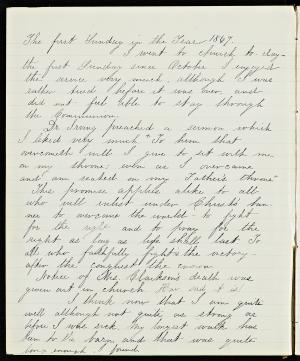 The first Sunday in the Year 1867.
I went to church to-day
the first Sunday since October I enjoyed
the service very much, although I was
rather tired before it was over, and
did not feel able to stay through
the Communion.
Dr Irving preached a sermon which
I liked very much "To him that
overcometh will I give to sit with me
on my throne, even as I overcame
and am seated on my Father's throne"
This promise applies alike to all
who will enlist under Christ's ban-
ner to overcome the world - to fight
for the right and to pray for the
right as long as life shall last To
all who faithfully fights the victory -
after the conquest the crown
Notice of Mrs Clarkson's death was
given out in church How sad it is!
I think now that I am quite
well although not quite as strong as
before I was sick. My longest walk has
been to the barn, and that was quite
long enough I found.